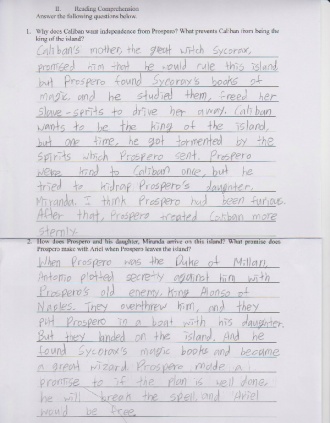 II. Reading Comprehension
Answer the following questions below.
1. Why does Caliban want independence from Prospero? What prevents Caliban from being the
king of the island?
Caliban's mother, the great witch Sycorax,
promised him that he would rule this island
but Prospero found Sycorax's books of
magic and he studied them, freed her
slave-sprits to drive her away. Caliban
wants to be the king of the island,
but one time, he got tormented by the
spirits which Prospero sent. Prospero
were kind to Caliban once, but he
tried to kidnap Prospero's daughter,
Miranda. I think Prospero had been furious.
After that, Prospero treated Caliban more
sternly.
2. How does Prospero and his daughter, Miranda arrive on this island? What promise does
Prospero make with Ariel when Prospero leaves the island?
When Prospero was the Duke of Millan,
Antonio plotted secretly against him with
Prospero's old enemy, King Alonso of
Naples. They overthrew him, and they
put Prospero in a boat with his daughter.
But they landed on the island. And he
found Sycorax's magic books and became
a great wizard. Prospero made a
promise to if the plan is well done,
he will break the spell, and Ariel
would be free.